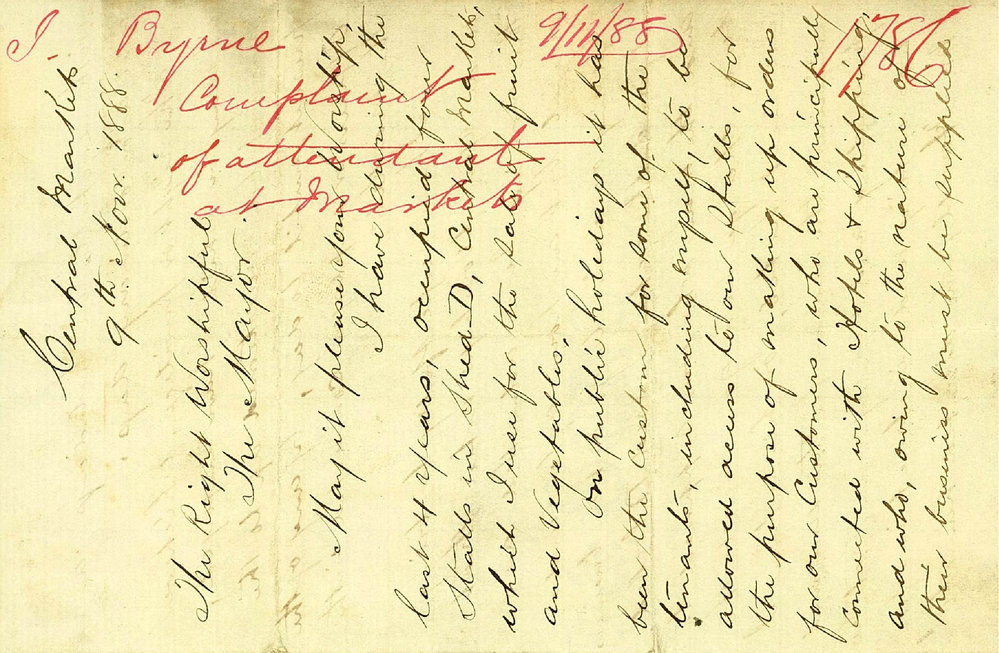 J. Byrne 9/11/88 1786
Complaint
of attendant
at Markets
Central Markets
9th Novr. 1888.
The Right Worshipful
The Mayor
May it please your Worship,
I have during the
last 4 years, occupied four
Stalls in Shed D, Central Markets,
which I use for the sale of fruit
and Vegetables,
On public holidays it has
been the Custom for some of the
tenants, including myself, to be
allowed access to our Stalls, for
the purpose of making up orders
for our Customers, who are principally
connected with Hotels & Shipping,
and who, owing to the nature of
their business must be supplied